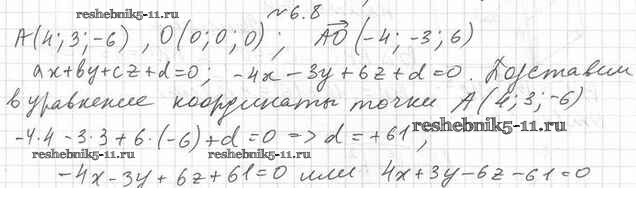 №6.8
reshebnik5-11.ru
A(4;3;-6), O(0;0;0); AO⃗(-4;-3;6)
ax+by+cz+d=0; -4x-3y+6z+d=0. Подставим
в уравнение координаты точки A(4;3;-6)
reshebnik5-11.ru reshebnik5-11.ru
-4·4-3·3+6·(-6)+d=0 => d=+61,
reshebnik5-11.ru
reshebnik5-11.ru reshebnik5-11.ru
-4x-3y+6z+61=0 или 4x+3y-6z-61=0